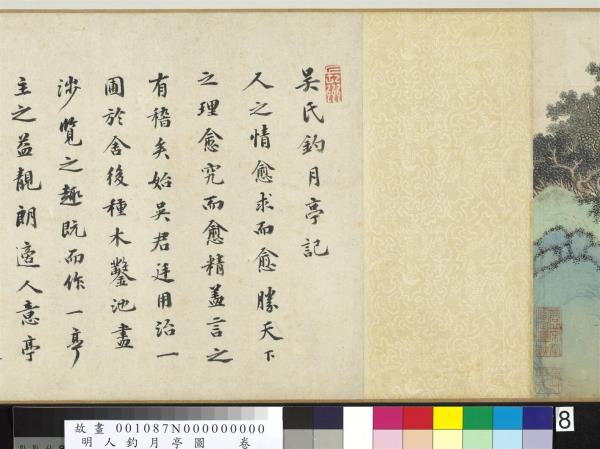 吳氏釣月亭記
人之情愈求而愈勝天下
之理愈究而愈精蓋言之
有稽矣始吳君廷用治一
圃於舍後種木鑿池盡
涉覽之趣既而作一亭
主之益靚朗適人意亭
故畫 001087N000000000
明人釣月亭圖 卷
8